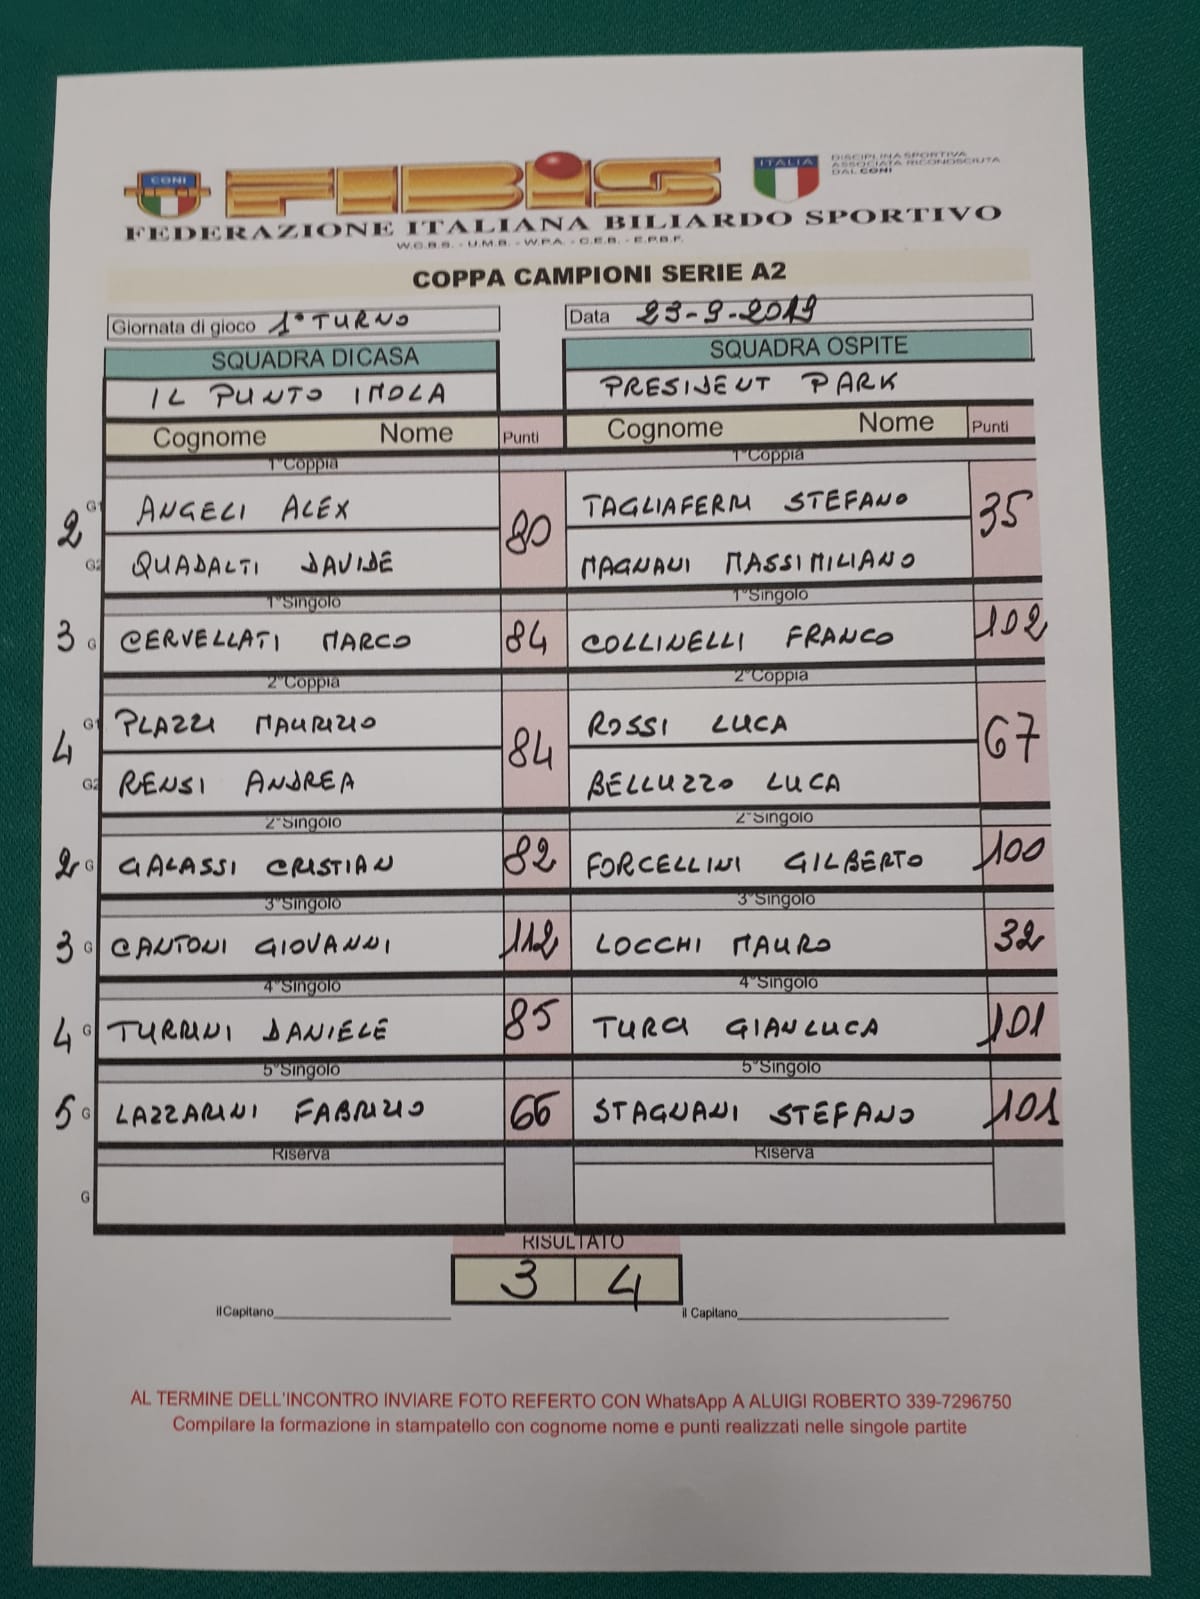 CONI
FIBIS
ITALIA
DISCIPLINA SPORTIVA
ASSOCIATA RICONOSCIUTA
DAL CONI
FEDERAZIONE ITALIANA BILIARDO SPORTIVO
W.C.B.S. - U.M.B. - W.P.A. - C.E.B. - E.P.B.F.
COPPA CAMPIONI SERIE A2
Giornata di gioco 1° TURNO Data 23-9-2019
SQUADRA DI CASA SQUADRA OSPITE
IL PUNTO IMOLA PRESIDENT PARK
Cognome Nome Punti Cognome Nome Punti
1°Coppia 1°Coppia
2 G1 ANGELI ALEX 80 TAGLIAFERRI STEFANO 35
G2 QUADALTI DAVIDE MAGNANI MASSIMILIANO
1°Singolo 1°Singolo
3 G CERVELLATI MARCO 84 COLLINELLI FRANCO 102
2°Coppia 2°Coppia
4 G1 PLAZZI MAURIZIO 84 ROSSI LUCA 67
G2 RENSI ANDREA BELLUZZO LUCA
2°Singolo 2°Singolo
2 G GALASSI CRISTIAN 82 FORCELLINI GILBERTO 100
3°Singolo 3°Singolo
3 G CANTONI GIOVANNI 112 LOCCHI MAURO 32
4°Singolo 4°Singolo
4 G TURRINI DANIELE 85 TURCI GIANLUCA 101
5°Singolo 5°Singolo
5 G LAZZARINI FABRIZIO 66 STAGNANI STEFANO 101
Riserva Riserva
G
RISULTATO
3 4
il Capitano il Capitano
AL TERMINE DELL'INCONTRO INVIARE FOTO REFERTO CON WhatsApp A ALUIGI ROBERTO 339-7296750
Compilare la formazione in stampatello con cognome nome e punti realizzati nelle singole partite